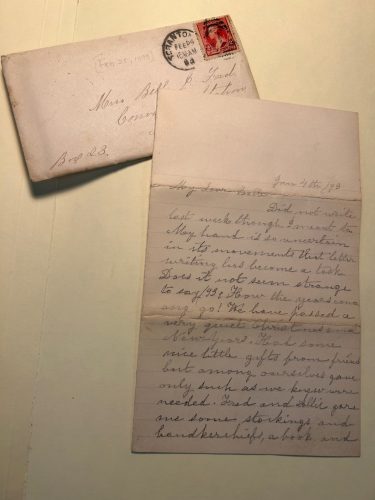 SCRANTON
FEB 6
93
Feb 25, 1893
Miss Bell B. Ford
Station
Box 23.
Jan 4th /93
My Dear Belle
Did not write
last week though I meant to.
My hand is so uncertain
in its movements that letter
writing has become a task
Does it not seem strange
to say /93? How the years come
and go! We have passed a
very quiet Christmas and
New Years. Had some
nice little gifts from friends
but among ourselves gave
only such as we knew were
needed. Fred and Ollie gave
me some stockings and
handkerchiefs, a book and